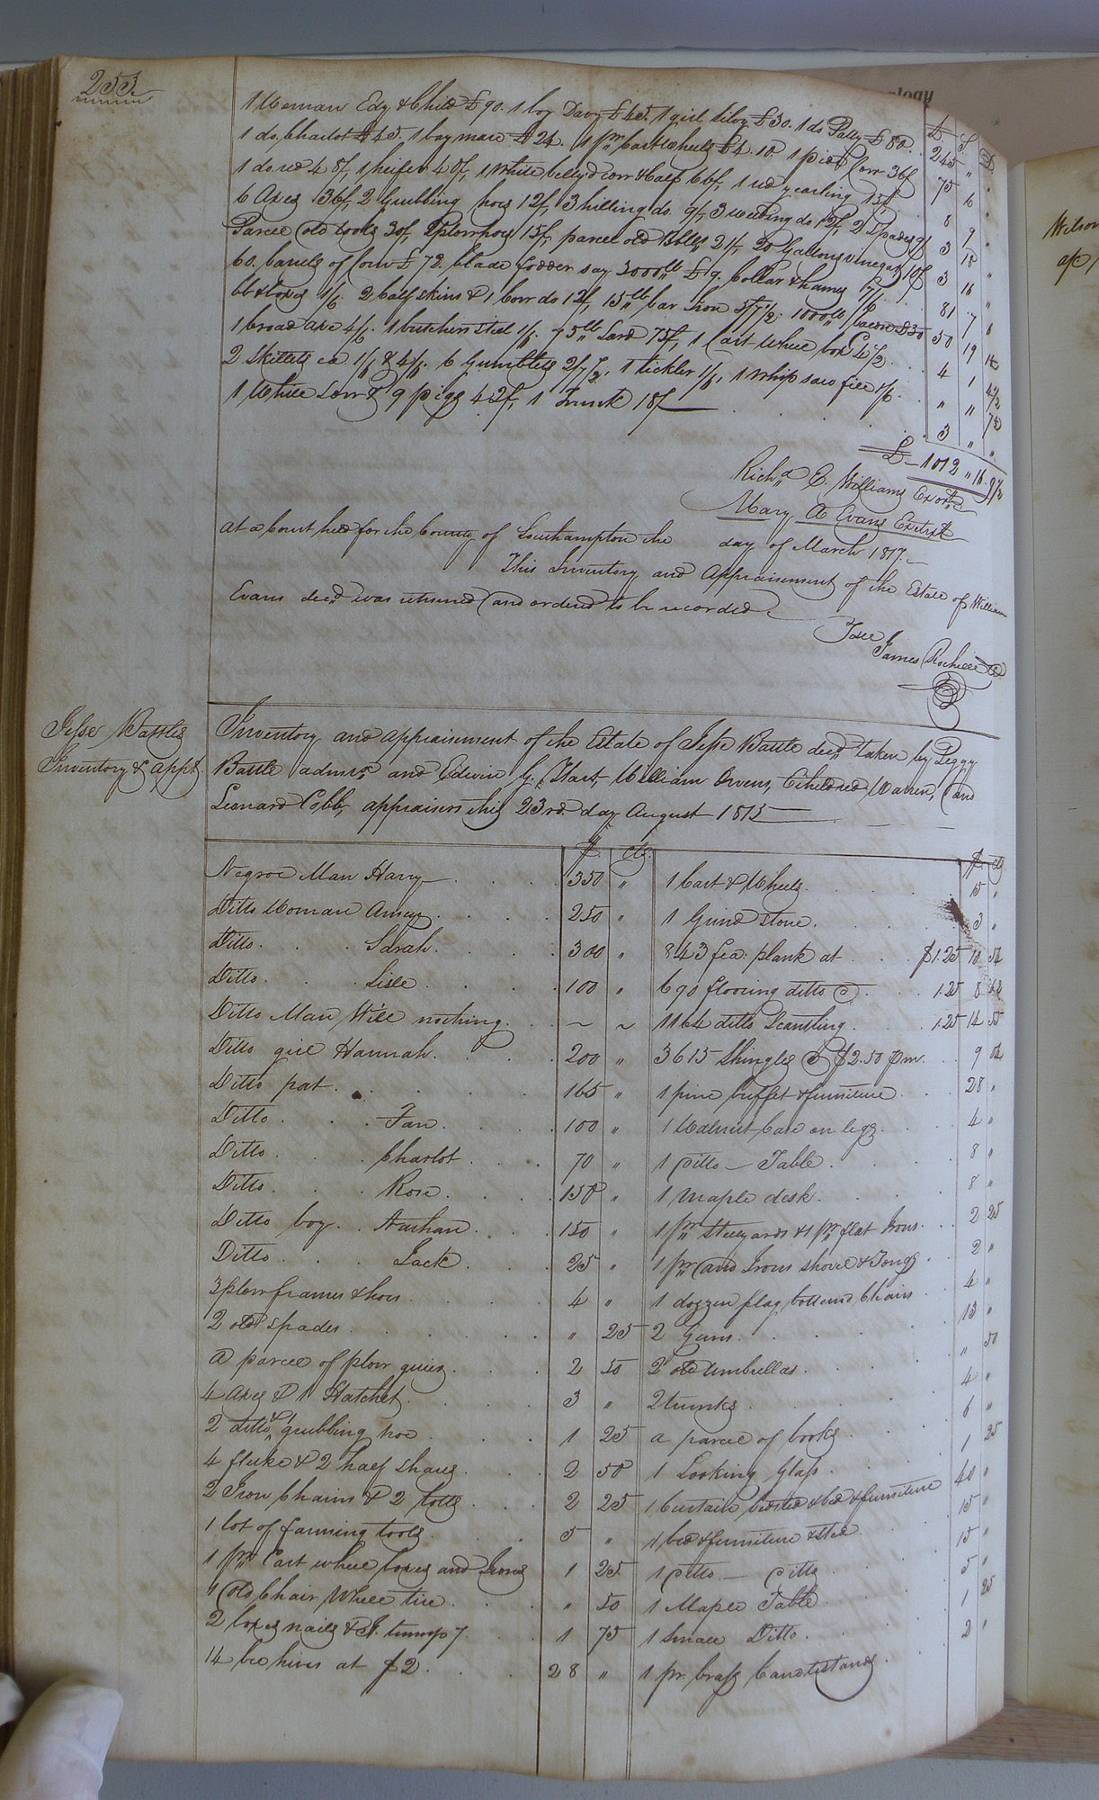 253
1 Woman Edy & Child £90. 1 boy Davy £45. 1 girl Silvy £30. 1 do Patty £80. 245 " "
1 do. Charlot £45. 1 bay mare £24. 1 pr. Cart wheels £4.10. 1 pied Cow 36/ 75 6 "
1 do. red 48/, 1 heifer 40/, 1 White bellyd cow & Calf 66/, 1 red yearling 15/ 8 9 "
6 Axes 36/, 2 Grubbing hoes 12/, 3 hilling do. 9/, 3 weeding do 12/, 2 Spades 9/ 3 18 "
Parcel old tools 30/, 2 plow hoes 15/, parcel old tables 21/, 20 Gallons vinegar 10/ 3 16 "
60. barrels of Corn £72. blade fodder say 3000 lb £9. Collar & hames 7/6 81 7 6
1/6. 2 Calf skins & 1 Cow do 12/, 15 lb bar Iron 5/7½. 1000 lb bacon £50 50 19
1 broad axe 4/6. 1 butchers steel 1/6. 75 lb Lard 75/, 1 Cart Wheel box 4 1 4½
2 Skillets 1/6 & 4/6. 6 Gumblets 2/7½, 1 tickler 1/6, 1 Whip saw file " " 7½
1 White Sow & 9 pigs 42/, 1 Trunk 18/ 3 " "
£ 1012 " 16. 9½
Richd. E. Williams Exor
Mary A Evans Extrx
At a Court held for the County of Southampton the day of March 1817.
This Inventory and Appraisement of the Estate of William
Evans decd. was returned and ordered to be recorded.
Teste
James Rochelle Ck
Jesse Battles
Inventory & Appt
Inventory and appraisement of the Estate of Jesse Battle decd. taken by Peggy
Battle admrx. and Edwin G. Hart, William Owens, Etheldred Warren, and
Leonard Cobb, appraisers this 23rd. day August 1815
$ cts. $ cts
Negroe Man Harry 350 " 1 Cart & Wheels 15 "
Ditto Woman Amey 250 " 1 Grind stone 3 "
Ditto Sarah 300 " 843 fea: plank at $1.25 10 54
Ditto Lisle 100 " 690 flooring ditto @ 1.25 8
Ditto Man Will nothing ~ ~ 1164 ditto Scantling 1.25 14 55
Ditto girl Hannah 200 " 3615 Shingles @ $2.50 pm. 9
Ditto pat 165 " 1 pine buffet & furniture 28 "
Ditto Fan 100 " 1 Walnut Case on legs 4 "
Ditto Charlot 70 " 1 ditto — Table 8 "
Ditto Rose 150 " 1 maple desk 8 "
Ditto boy Nathan 150 " 1 pr. Steelyards & 1 pr. flat Irons 2 25
Ditto Jack 25 " 1 pr. and Irons shovel & Tongs 2 "
3 plow frames & hoes 4 " 1 dozzen flag bottomd Chairs 4 "
2 old spades " 25 2 Guns 13 "
A parcel of plow 2 50 2 old umbrellas " 50
4 axes & 1 Hatchet 3 " 2 trunks 4 "
2 ditto & grubbing hoe 1 25 a parcel of books 6 "
4 fluke & 2 half shares 2 50 1 Looking Glass 1 25
2 Iron Chains & 2 Colts 2 25 1 Curtain bedsted & bed & furniture 40 "
1 lot of farming tools 5 " 1 bed & furniture & sted 15 "
1 pr. Cart wheel boxes and Irons 1 25 1 ditto — ditto 15 "
1 Old Chair Wheel tire " 50 1 Maple Table 5 "
2 boxes nails & 1 75 1 Small Ditto 1 25
14 bee hives at $2 28 " 1 pr. brass Candlestands 2 "
Wilson
ap